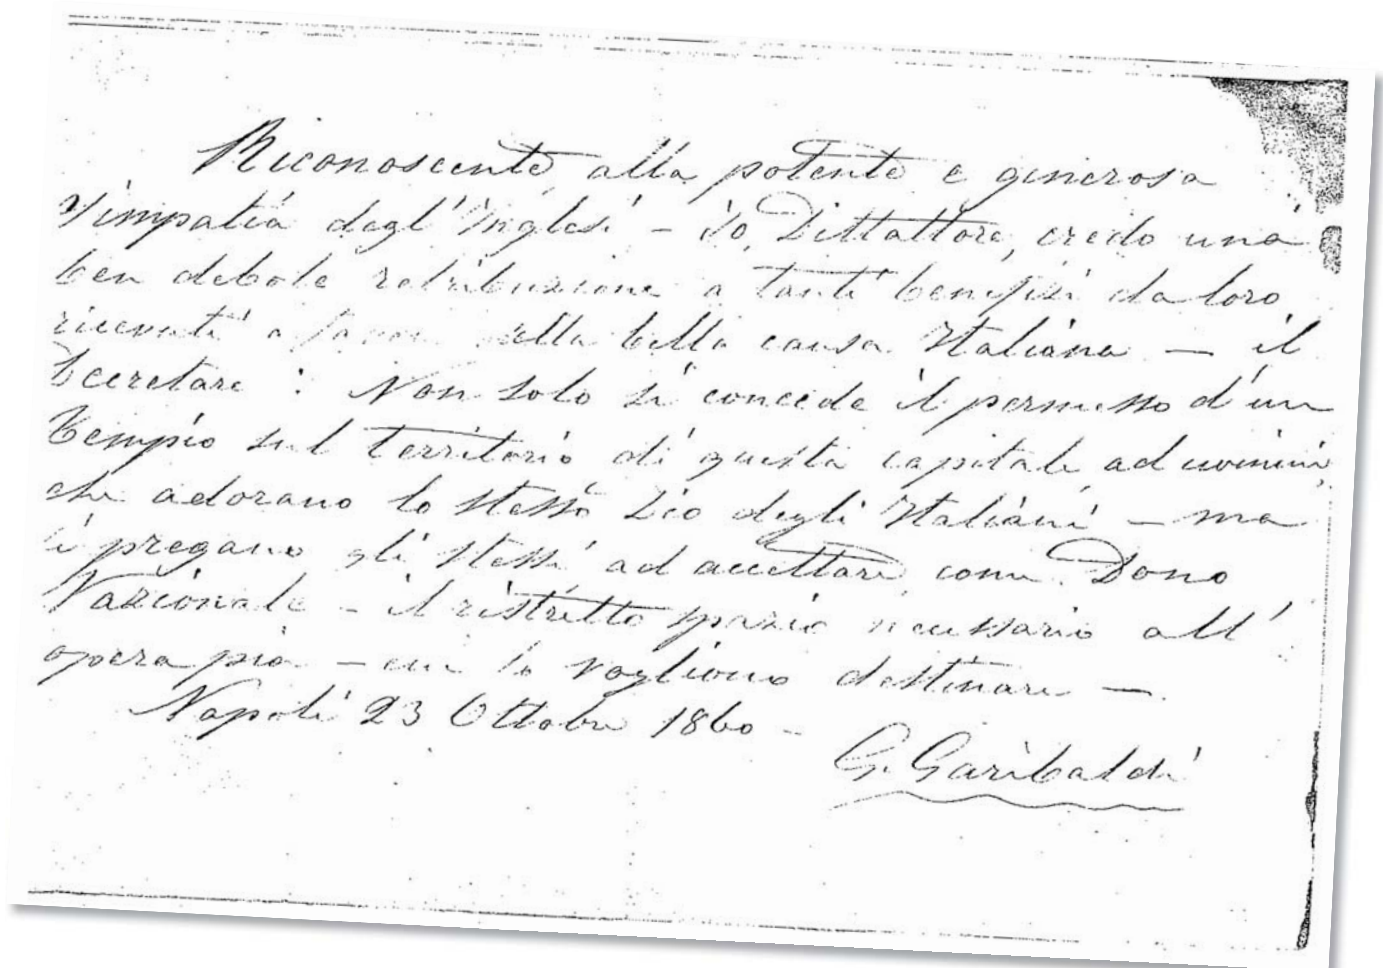 Riconoscente alla potente e generosa
simpatia degl' Inglesi - io, Dittattore, credo una
ben debole retribuzione a tanti benefizi da loro
ricevuti a favore della bella causa Italiana — il
Decretare : Non solo si concede il permesso d'un
Tempio sul territorio di questa capitale ad uomini,
che adorano lo stesso Dio degli Italiani - ma
si pregano gli stessi ad accettare come Dono
Nazionale - il ristretto spazio necessario all'
opera pia - cui lo vogliono destinare —.
Napoli 23 Ottobre 1860 -
G. Garibaldi